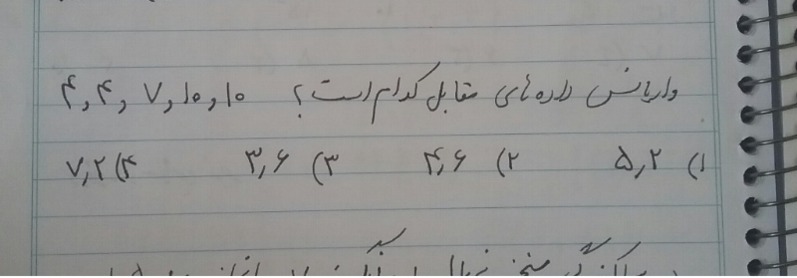 واریانس داده‌های مقابل کدام است؟ ۱۰ و ۱۰ و ۷ و ۴ و ۴
۱) ۵٫۲ ۲) ۴٫۶ ۳) ۳٫۶ ۴) ۷٫۲